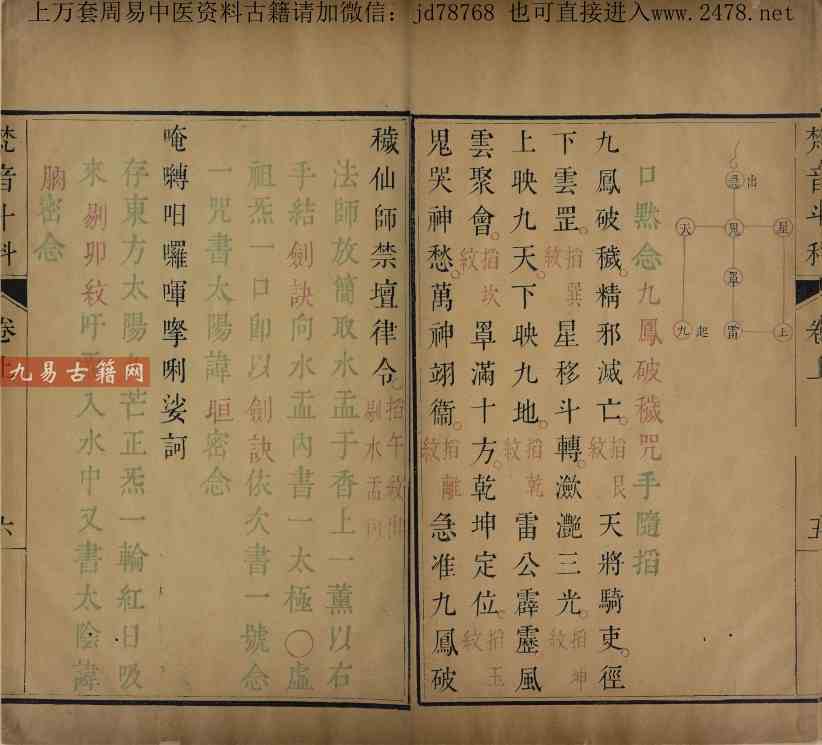 上万套周易中医资料古籍请加微信：jd78768 也可直接进入www.2478.net
出
急
天 鬼 星
罩
九 起 雷 上
口默念九鳳破穢咒手隨掐
九鳳破穢。精邪滅亡。掐艮紋 天將騎吏。徑
下雲罡。掐巽紋 星移斗轉。瀲灔三光。掐坤紋
上映九天。下映九地。掐乾紋 雷公霹靂。風
雲聚會。掐坎紋 罩滿十方。乾坤定位。掐玉紋
鬼哭神愁。萬神翊衛。掐離紋 急准九鳳破
穢仙師禁壇律令 掐午紋
剔水盂內
法師放簡取水盂于香上一薰以右
手結劍訣向水盂內書一太極〇虛
祖炁一口即以劍訣依次書一號念
一咒書太陽諱 密念
唵嚩呬囉㖶拏唎娑訶
存東方太陽 芒正炁一輪紅日吸
來剔卯紋吁 入水中又書太陰諱
密念
梵音斗科
卷上
五
六
九易古籍网